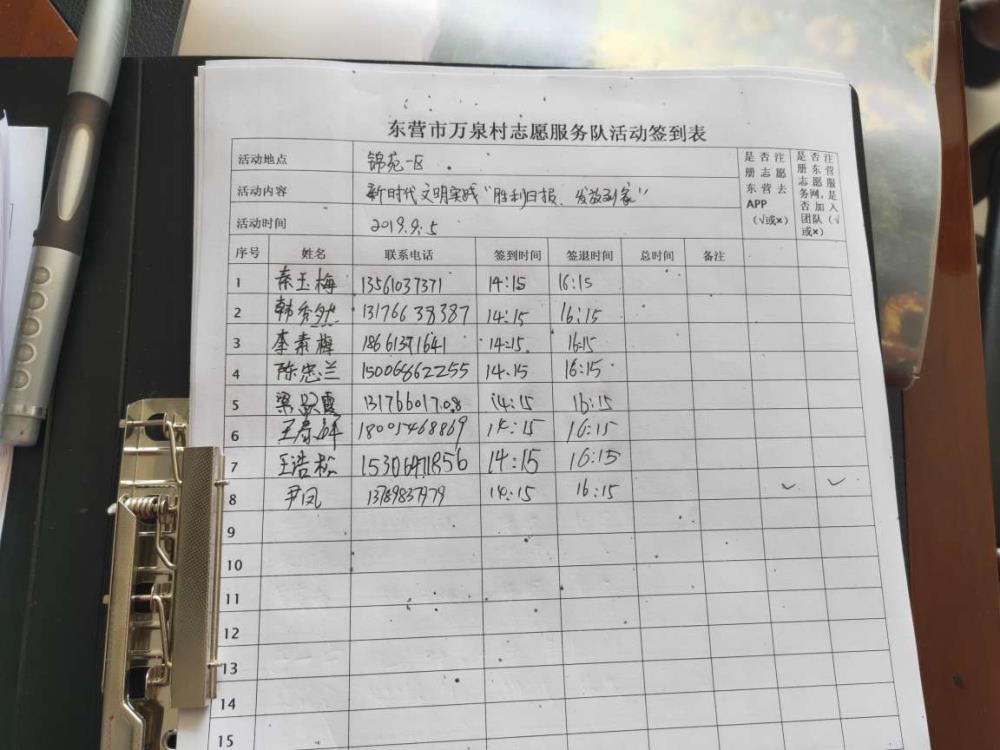 东营市万泉村志愿服务队活动签到表
活动地点 锦苑一区 是否注册志愿东营去APP(√或×) 是否注册东营志愿服务网,是否加入团队(√或×)
活动内容 新时代文明实践"胜利日报、发放到家"
活动时间 2019.9.5
序号 姓名 联系电话 签到时间 签退时间 总时间 备注
1 秦玉梅 13561037371 14:15 16:15
2 韩秀 13176638387 14:15 16:15
3 李素梅 18661391641 14:15 16:15
4 陈忠兰 15006862255 14:15 16:15
5 梁 霞 13176601708 14:15 16:15
6 王春 18001468869 14:15 16:15
7 王浩松 14:15 16:15
8 尹凤 13789837979 14:15 16:15 ✓ ✓
9
10
11
12
13
14
15